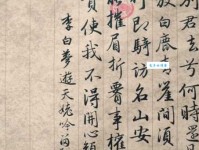 别君去兮何時還
放白鹿青崖間須
行即騎訪名山安
能摧眉折腰事權
貴使我不得開心顏
李白夢遊天姥吟